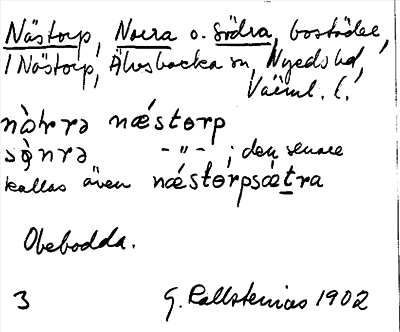 Nästorp, Norra o. Södra, bostäder,
i Nästorp, Älvsbacka sn, Nyeds hd,
Värml. l.
nòrrə næ´storp
sònrə - " - ; den senare
kallas även næ´storpsætra
Obebodda.
3 G. Kallstenius 1902